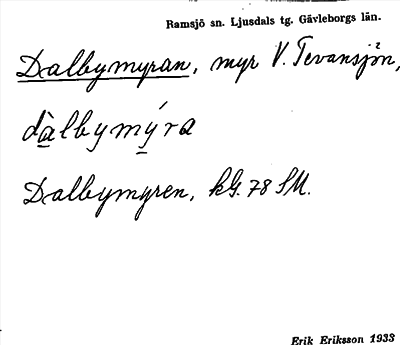 Ramsjö sn. Ljusdals tg. Gävleborgs län.
Dalbymyran, myr V. Tevansjön,
dàlbymýra
Dalbymyren, kG. 78 SM.
Erik Eriksson 1933